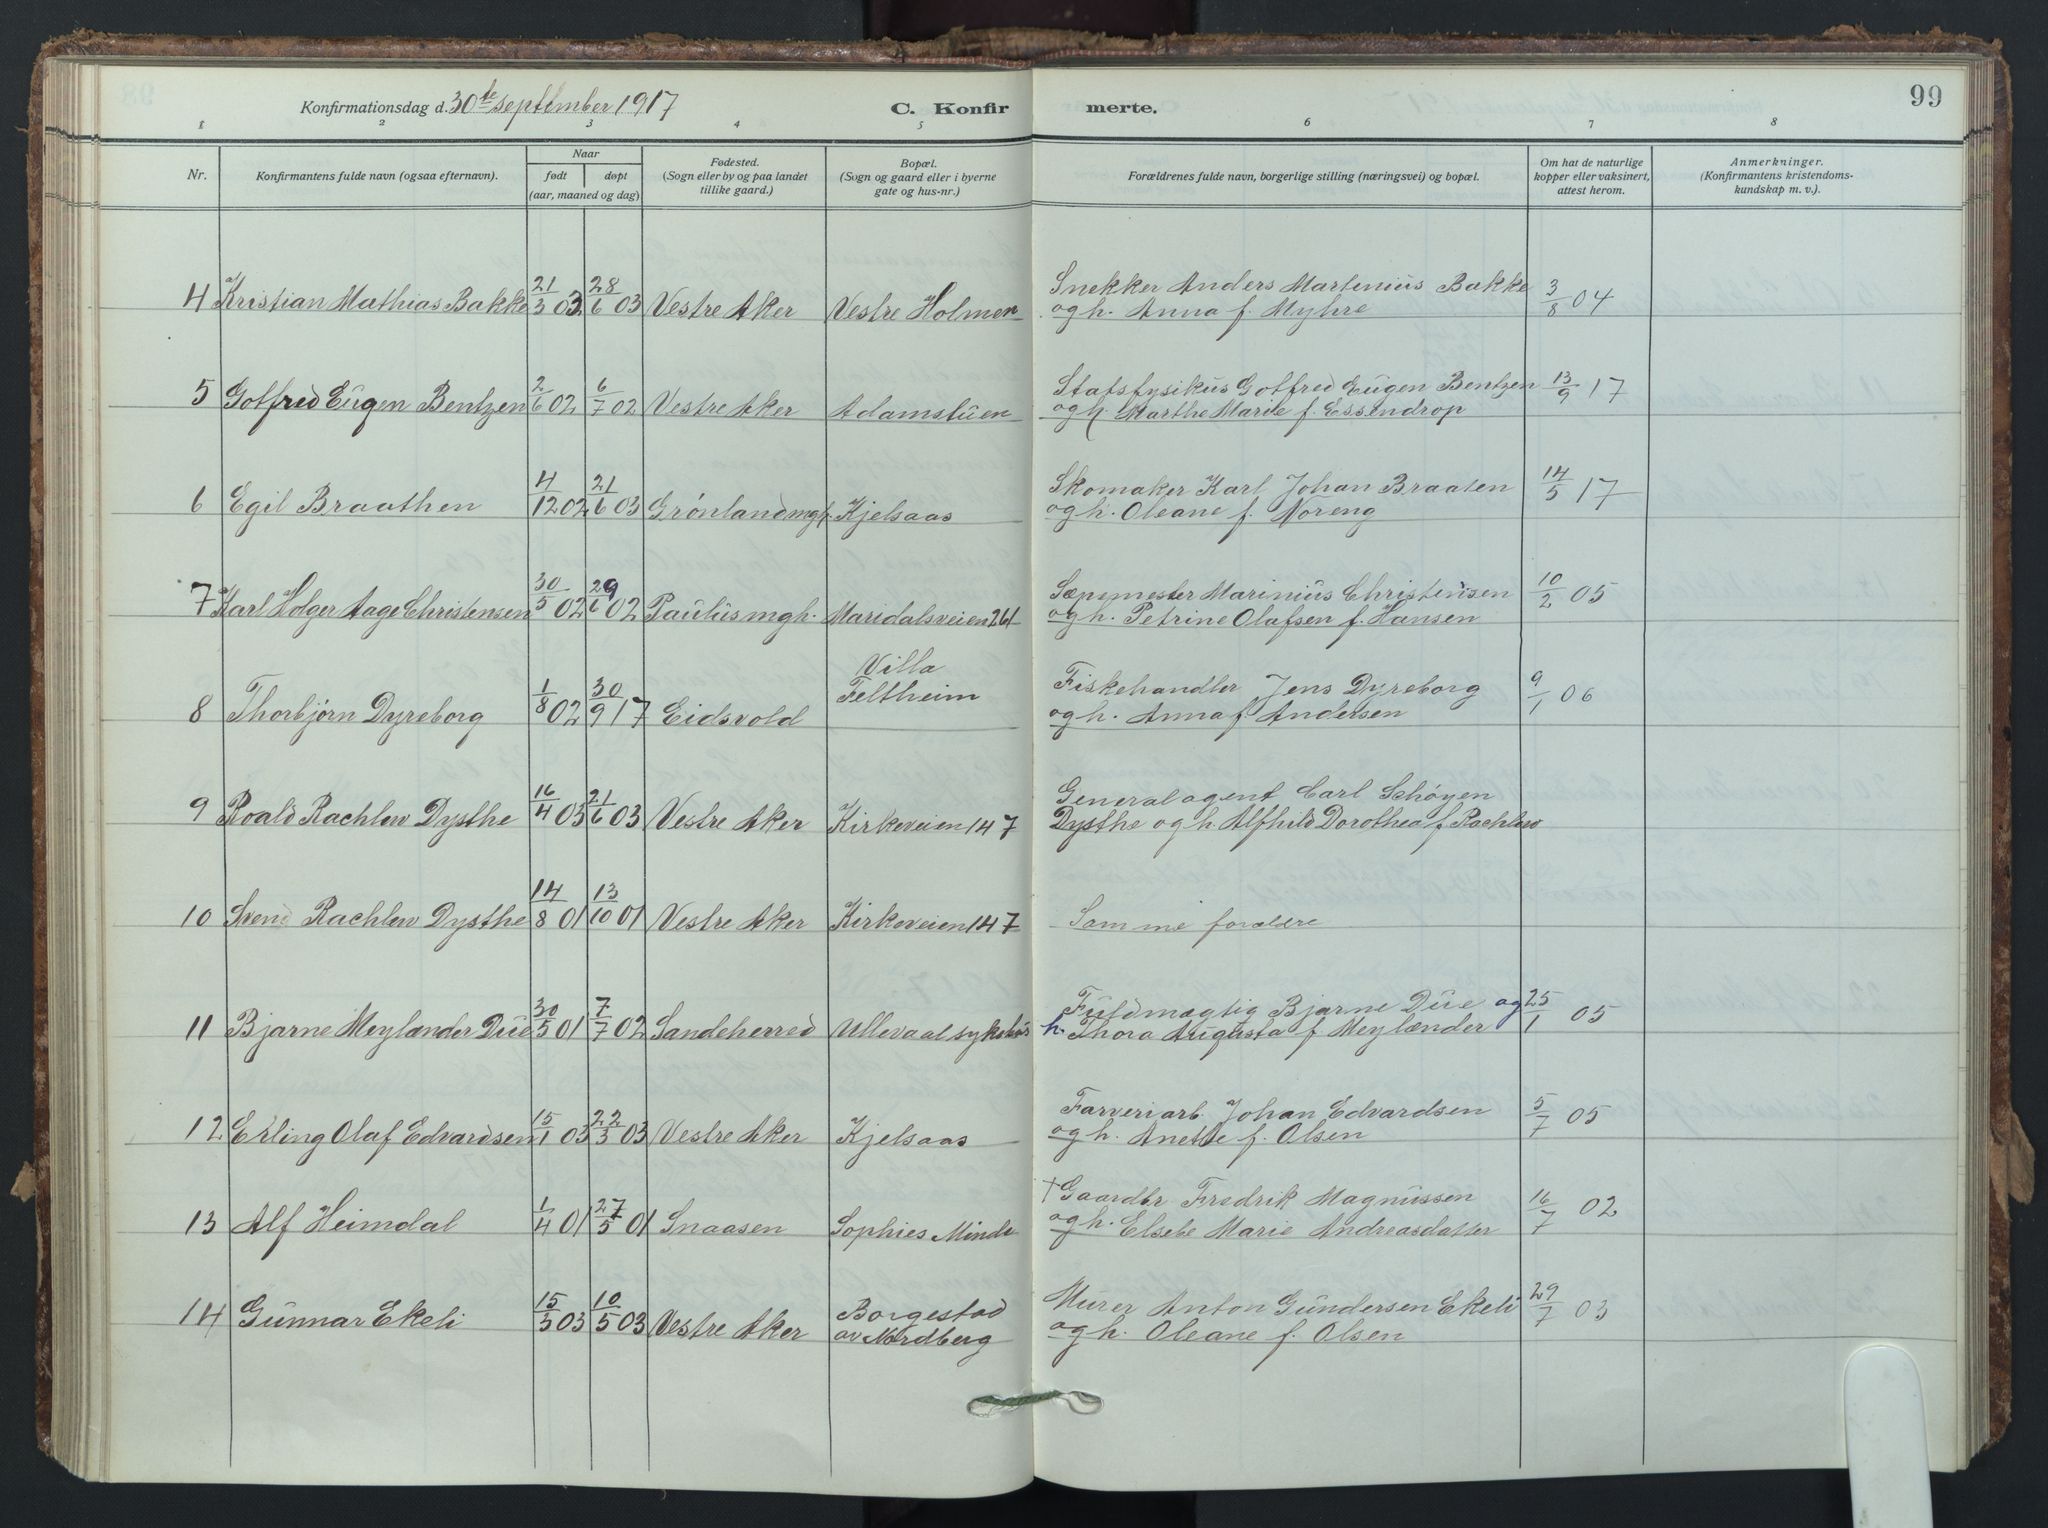 Konfirmationsdag d. 30te september 1917 C. Konfir merte. 99
1 2 3 4 5 6 7 8
Nr. Konfirmantens fulde navn (ogsaa efternavn). Naar født døpt (aar, maaned og dag) Fødested. (Sogn eller by og paa landet tillike gaard.) Bopæl. (Sogn og gaard eller i byerne gate og hus-nr.) Forældrenes fulde navn, borgerlige stilling (næringsvei) og bopæl. Om hat de naturlige kopper eller vaksinert, attest herom. Anmerkninger. (Konfirmantens kristendoms- kundskap m. v.).
4 Kristian Mathias Bakke 21/3 03 28/6 03 Vestre Aker Vestre Holmen Snekker Anders Martenius Bakke 3/8 04
og h. Anna f. Myhre
5 Gotfred Eugen Bentzen 2/6 02 6/7 02 Vestre Aker Adamstuen Statsfysikus Gotfred Eugen Bentzen 13/9 17
og h. Marthe Marie f. Essendrop
6 Egil Braathen 4/12 02 21/6 03 Grønland mgh. Kjelsaas Skomaker Karl Johan Braaten 14/5 17
og h. Oleane f. Noreng
7 Karl Holger Aage Christensen 30/5 02 29/6 02 Paulus mgh. Maridalsveien 261 Sæpemester Marinius Christensen 10/2 05
og h. Petrine Olafsen f. Hansen
8 Thorbjørn Dyreborg 1/8 02 30/9 17 Eidsvold Villa Feltheim Fiskehandler Jens Dyreborg 9/1 06
og h. Anna f. Andersen
9 Roald Rachlew Dysthe 16/4 03 21/6 03 Vestre Aker Kirkeveien 147 Generalagent Carl Schøyen
Dysthe og h. Alfhild Dorothea f. Rachlew
10 Svend Rachlew Dysthe 14/8 01 13/10 01 Vestre Aker Kirkeveien 147 Samme forældre
11 Bjarne Meylænder Due 30/5 01 7/7 02 Sandeherred Ullevaal sykehus Fuldmægtig Bjarne Due og 25/1 05
h. Thora Augusta f. Meylænder
12 Erling Olaf Edvardsen 15/1 03 22/3 03 Vestre Aker Kjelsaas Farveriarb. Johan Edvardsen 5/7 05
og h. Anette f. Olsen
13 Alf Heimdal 1/4 01 27/5 01 Snaasen Sophies Minde † Gaardbr Fredrik Magnussen 16/7 02
og h. Elsebe Marie Andreasdatter
14 Gunnar Ekeli 15/3 03 10/5 03 Vestre Aker Borgestad av Nordberg Murer Anton Gundersen Ekeli 29/7 03
og h. Oleane f. Olsen